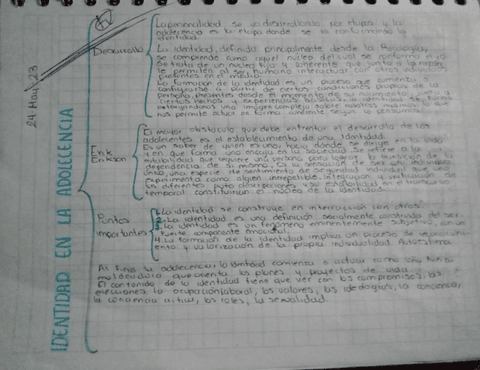 24 May, 23
IDENTIDAD EN LA ADOLECENCIA
Desarrollo
La personalidad se va desarrollando por etapas y la
adolecencia es la etapa donde se va conformando la
identidad.
La identidad, definida principalmente desde la Psicología,
se comprende como aquel núcleo del cual se conforma el yo
Se trata de un núcleo fijo y coherente que junto a la razón
le permiten al ser humano interactuar con otros individuos
presentes en el medio.
La formación de la identidad es un proceso que comienza a
configurarse a partir de ciertas condiciones propias de la
persona, presentes desde el momento de su nacimiento, junto a
ciertos hechos y experiencias básicas. la identidad se forma
otorgándonos una imagen compleja sobre nosotros mismos, la que
nos permite actuar en forma coherente según lo que pensamos.
Erik
Erikson
El mayor obstáculo que debe enfrentar el desarrollo de los
adolecentes es el establecimiento de una identidad.
Es un saber de quien es uno, hacia donde se dirige en la vida
y en que forma uno encaja en la sociedad. Se refiere a la
estabilidad que requiere una persona para lograr la
dependencia de si misma. Es la sensación de ser un individuo
único, una especie de sentimiento de seguridad individual que uno
experimenta como alguien irrepetible. Integración y
las diferentes auto descripciones y su estabilidad en el transcurso
temporal constituirían el núcleo de la identidad.
Puntos
importantes
1. La identidad se construye en interacción con otros.
2. La identidad es una definición socialmente construida del ser.
3. La identidad es un fenómeno eminentemente subjetivo, con un
fuerte componente emocional.
4. La formación de la identidad implica un proceso de
y valoración de la propia individualidad. Autoestima
Al final de la adolecencia, la identidad comienza a actuar como
moldeador que orienta los planes y proyectos de vida.
El contenido de la identidad tiene que ver con los compromisos, las
elecciones, la ocupación laboral, los valores, las ideologías, la
la los roles, la sexualidad.